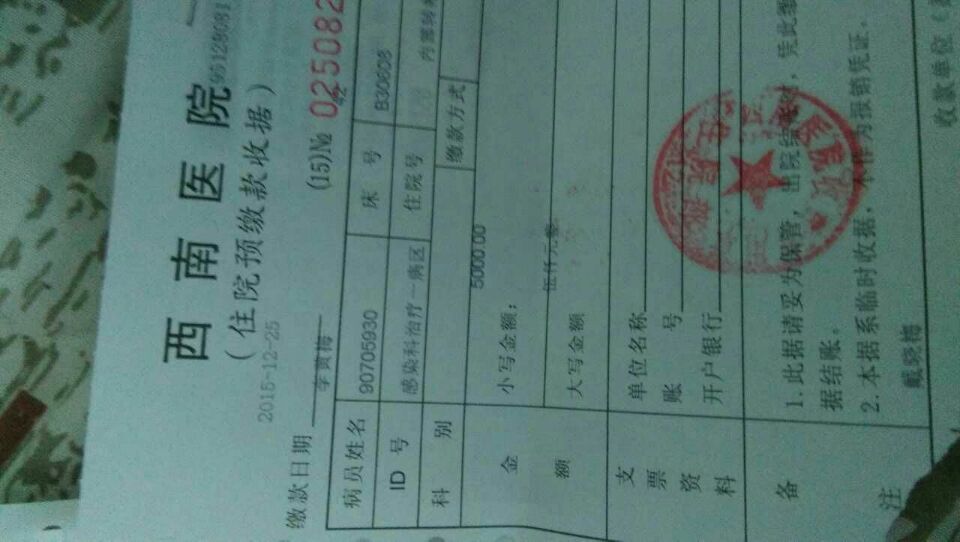 西南医院
(住院预缴款收据)
95128081
2015-12-25
(15)№ 025082
42
缴款日期
李黄梅
病员姓名
床号
B30608
90705930
ID 号
住院号
感染科治疗一病区
科别
缴款方式
金额
小写金额:
5000.00
大写金额
伍仟元整
支票资料
单位名称
账号
开户银行
备注
1.此据请妥为保管,出院结账时,凭此
据结账。
2.本据系临时收据,不作为报销凭证。
戴晓梅
收款单位(